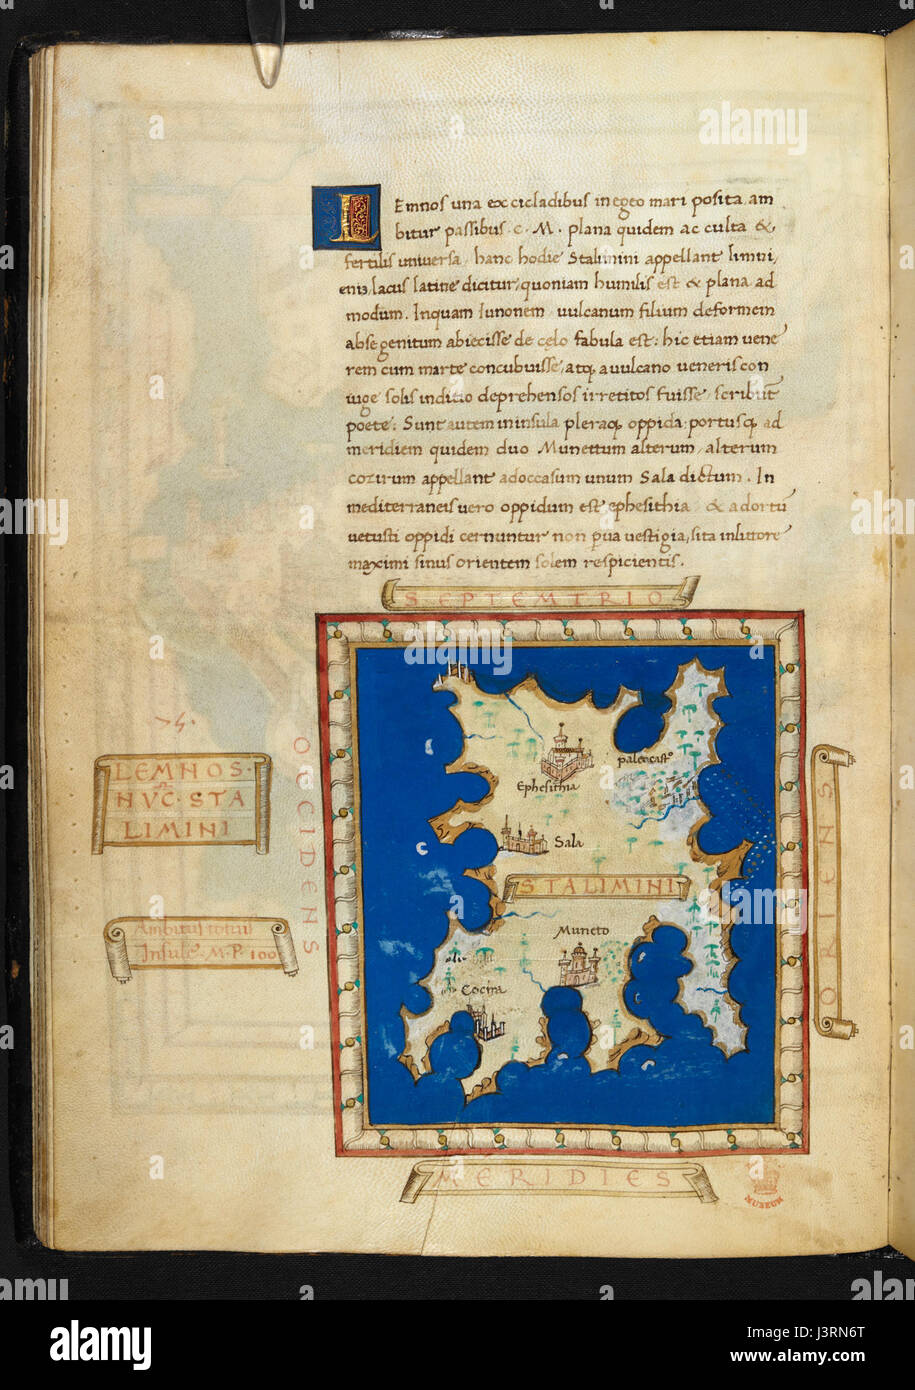 LEmnos una ex cicladibus in egeo mari posita am
bitur passibus .c. M. plana quidem ac culta &
fertilis universa, hanc hodie Stalimini appellant limni,
enis, lacus latine dicitur, quoniam humilis est & plana ad
modum. Inquam Iunonem, vulcanum filium deformem
abse genitum abiecisse de celo fabula est: hic etiam vene
rem cum marte concubuisse, atq, a vulcano veneris con
iuge solis inditio deprehensos irretitos fuisse, scribūt
poete: Sunt autem in insula pleraq, oppida, portusq, ad
meridiem quidem duo Munettum alterum, alterum
appellant ad occasum unum Sala dictum. In
mediterraneis vero oppidum est ephesithia & ad ortū
vetusti oppidi cernuntur non pva vestigia, sita in littore
maximi sinus orientem solem respicientis.
SEPTEMTRIO
OCCIDENS
LEMNOS.
NVC.STA
LIMINI
Ambitus totius
Insule.M.P.100
ORIENS
Ephesithia
palencastº
Sala
STALIMINI
Muneto
Cocira
MERIDIES
MUSEUM
alamy stock photo
alamy
Image ID: J3RN6T
www.alamy.com